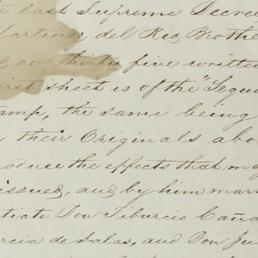 last Supreme Decree
Martinez del Rio Brothe
on thirty five written
irst sheet is of the "Segu
amp, the same being
their Originals abo
oduce the effects that ma
issued, and by him mar
tiate Don Tiburcio Caña
rcia de Salas, and Don Ju